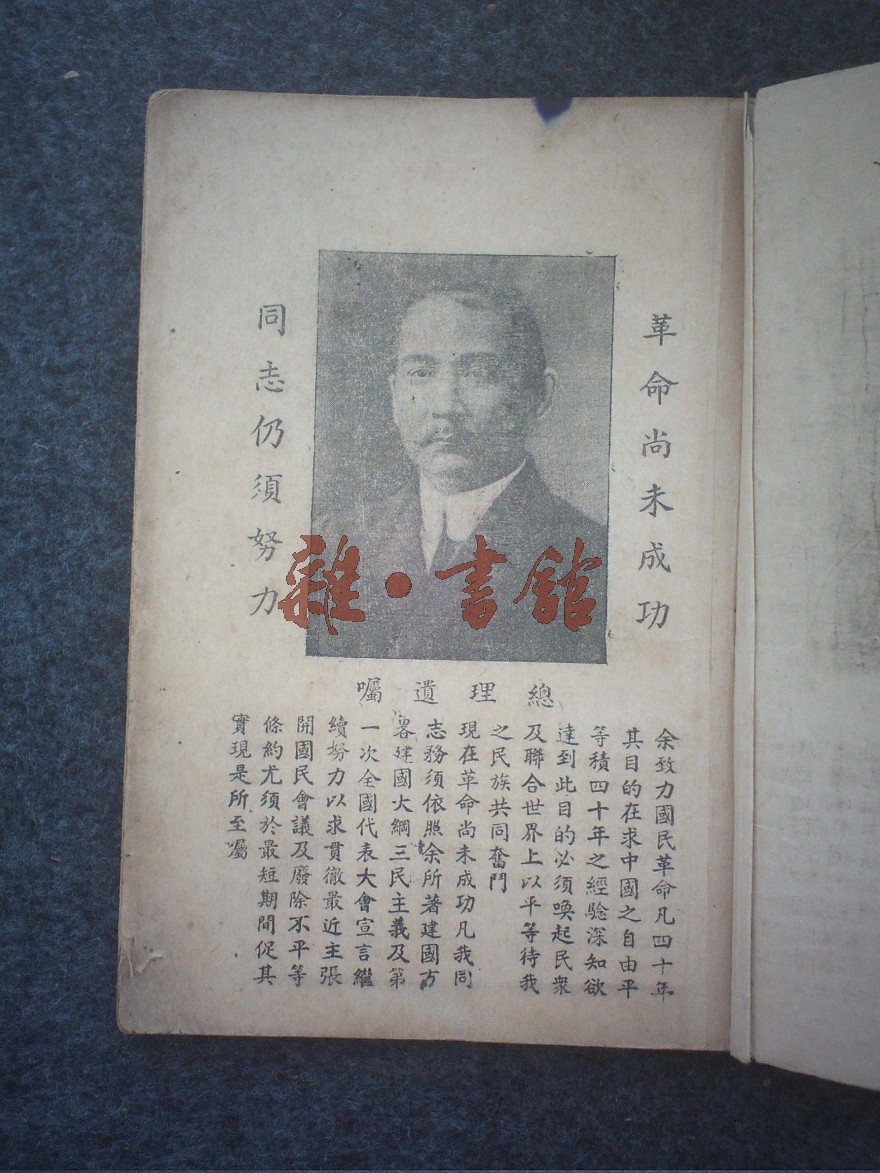 革命尚未成功
同志仍須努力
雜·書館
總理遺囑
余致力國民革命凡四十年
其目的在求中國之自由平
等積四十年之經驗深知欲
達到此目的必須喚起民衆
及聯合世界上以平等待我
之民族共同奮鬥
現在革命尚未成功凡我同
志務須依照余所著建國方
畧建國大綱三民主義及第
一次全國代表大會宣言繼
續努力以求貫徹最近主張
開國民會議及廢除不平等
條約尤須於最短期間促其
實現是所至囑